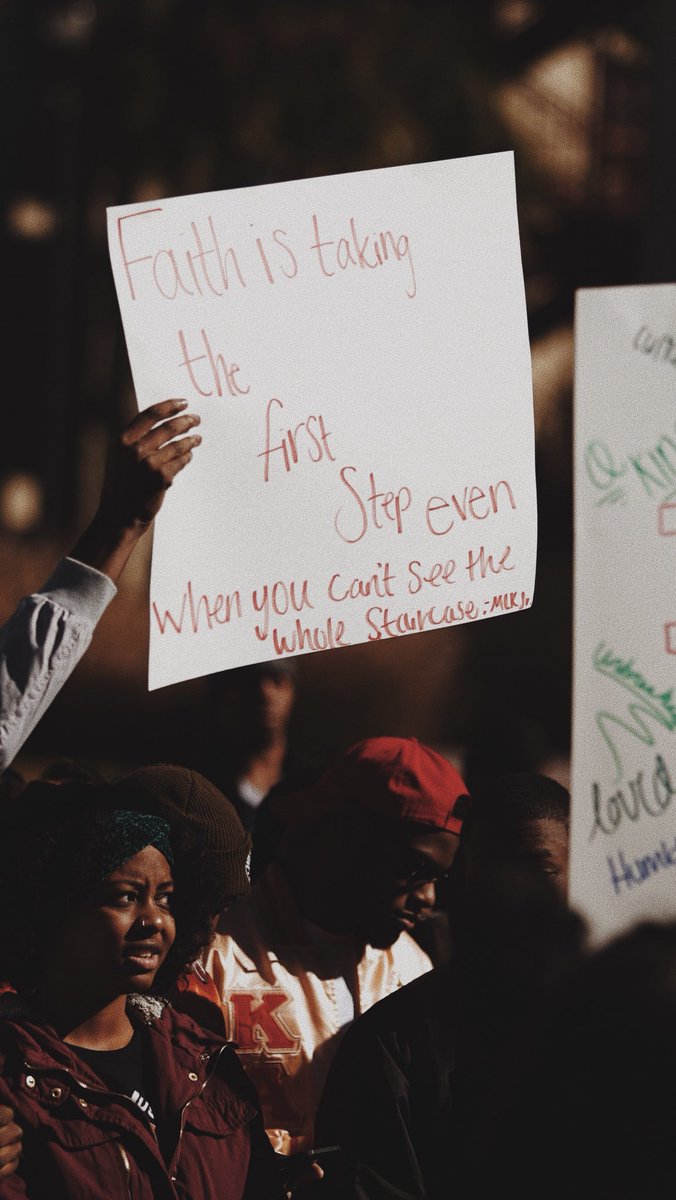 Faith is taking
the
first
Step even
when you can't see the
whole Staircase. -MLKJr.
loved
K